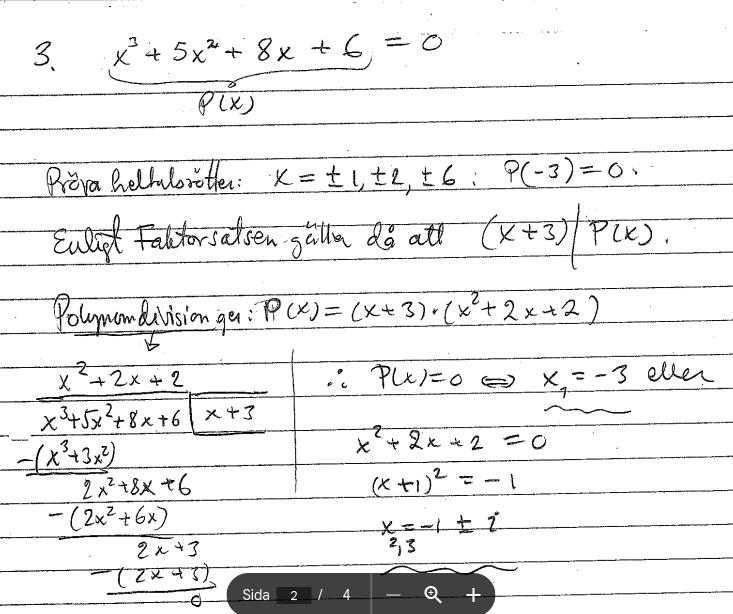 3. x³ + 5x² + 8x + 6 = 0
P(x)
Pröva heltalsrötter: x = ±1, ±2, ±6 : P(-3) = 0.
Enligt Faktorsatsen gäller då att (x+3) | P(x).
Polynomdivision ger: P(x) = (x+3)·(x²+2x+2)
x²+2x+2
x³+5x²+8x+6 | x+3
-(x³+3x²)
2x²+8x+6
-(2x²+6x)
2x+3
-(2x+3)
0
∴ P(x)=0 ⇔ x₁ = -3 eller
x²+2x+2 = 0
(x+1)² = -1
x₂,₃ = -1 ± i
Sida 2 / 4 − +